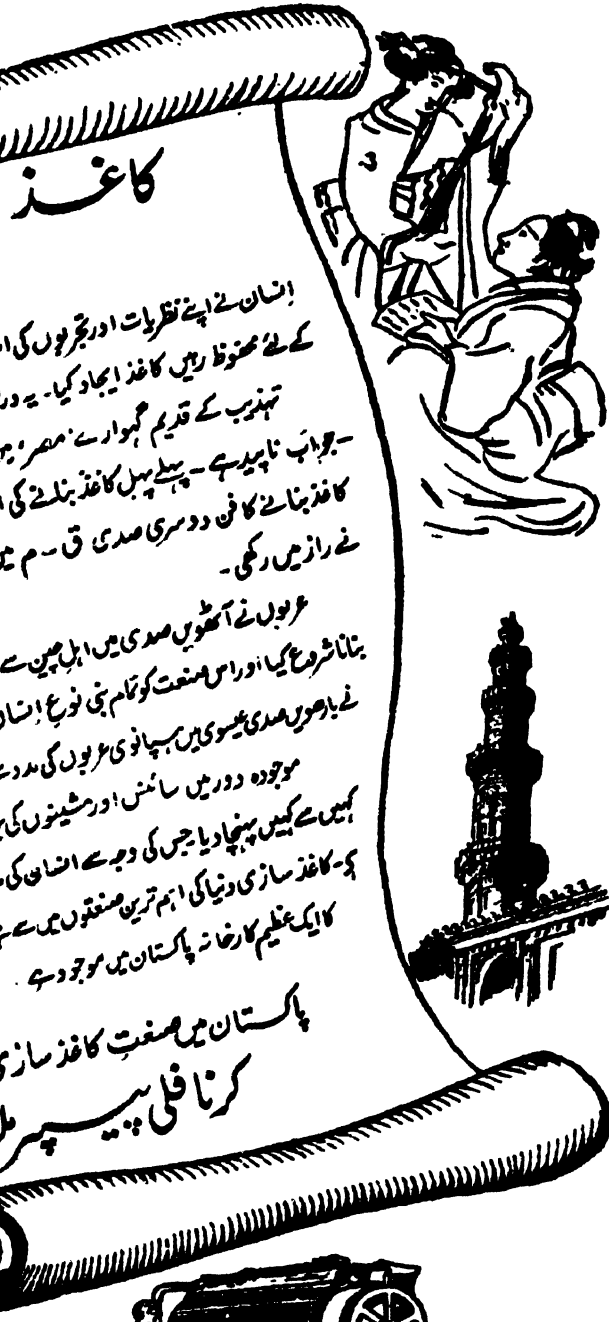 کاغذ
اِنسان نے اپنے نظریات اور تجربوں کی
کے لئے محفوظ رہیں کاغذ ایجاد کیا۔ یہ
تہذیب کے قدیم گہوارے مصر،
۔جواب ناپید ہے ۔ پہلے پہل کاغذ بنانے کی
کاغذ بنانے کا فن دوسری صدی ق ۔ م میں
نے راز میں رکھی ۔
عربوں نے آٹھویں صدی میں اہلِ چین سے
بنانا شروع کیا اور اس صنعت کو تمام بنی نوعِ اِنسان
نے بارھویں صدی عیسوی میں ہسپانوی عربوں کی مدد سے
موجودہ دور میں سائنس اور مشینوں کی
کہیں سے کہیں پہنچا دیا جس کی وجہ سے انسان کی
کاغذ سازی دنیا کی اہم ترین صنعتوں میں سے
کا ایک عظیم کارخانہ پاکستان میں موجود ہے ۔
پاکستان میں صنعتِ کاغذ سازی
کرنافلی پیپر